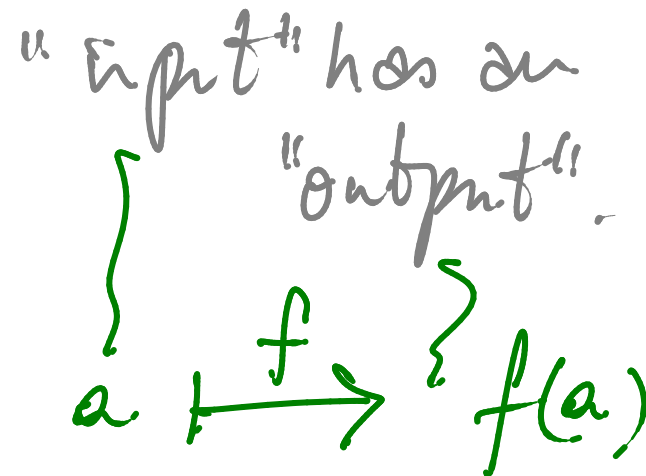 "input" has an
"output".
a f↦ f(a)